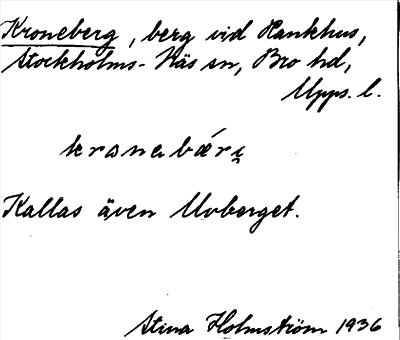 Kroneberg, berg vid Hankhus,
Stockholms-Näs sn, Bro hd,
Upps. l.
kronabæ´ri̯
Kallas även Uvberget.
Stina Holmström 1936